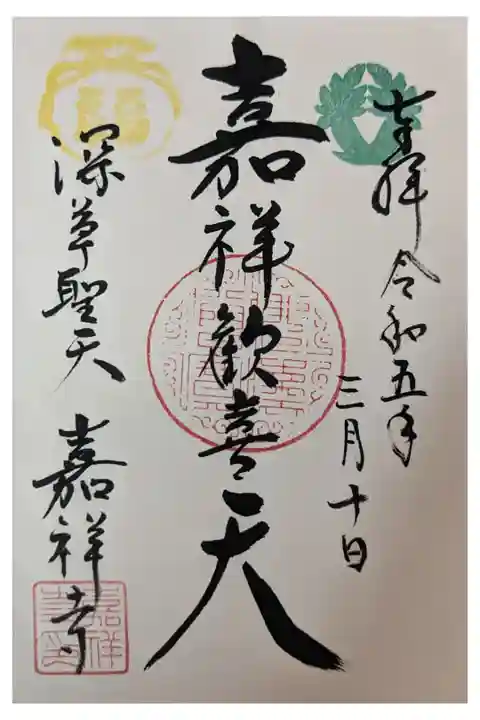 奉拝 令和五年
三月十日
嘉祥歓喜天
深草聖天 嘉祥寺
嘉祥寺印